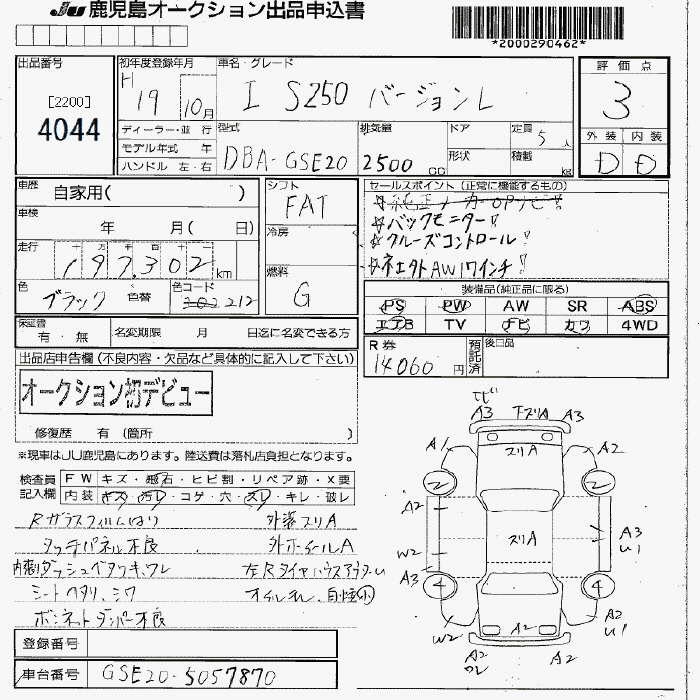 JU 鹿児島オークション出品申込書
*2000290462*
出品番号
[2200]
4044
初年度登録年月
H 19 10月
車名・グレード
I S250 バージョンL
評価点
3
外装 内装
D D
ディーラー・並 行
モデル年式 年
ハンドル 左・右
型式
DBA-GSE20
排気量
2500 cc
ドア
形状
定員 5人
積載 kg
車歴 自家用( )
車検 年 月( 日)
走行
十 万 千 百 十 一
197,302 km
色 ブラック 色替
色コード
212
シフト
FAT
冷房
燃料
G
セールスポイント(正常に機能するもの)
☆バックモニター!
☆クルーズコントロール!
AW17インチ!
装備品(純正品に限る)
PS PW AW SR ABS
エアB TV ナビ カワ 4WD
保証書 有・無
名変期限 月 日迄に名変できる方
R券 14060円
預託済
後日品
出品店申告欄(不良内容・欠品など具体的に記入して下さい)
オークション初デビュー
修復歴 有(箇所 )
※現車はJU鹿児島にあります。陸送費は落札店負担となります。
検査員記入欄
FW キズ・飛石・ヒビ割・リペア跡・X要
内装 キズ・汚レ・コゲ・穴・スレ・キレ・破レ
Rガラスフィルムはり 外装スリA
タッチパネル不良 外ホイールA
内張ダッシュベタツキ、ワレ 左RタイヤハウスアウターU
シートヘタリ、シワ オイルモレ、自焼小
ボンネットダンパー不良
登録番号
車台番号 GSE20-5057870
トビ
A3 下スリA A3
スリA
A1 A2
2 2
A2
スリA
A3
U1
W2
A3
4 4
A2
U1
W2
A2
A2
ワレ
A2